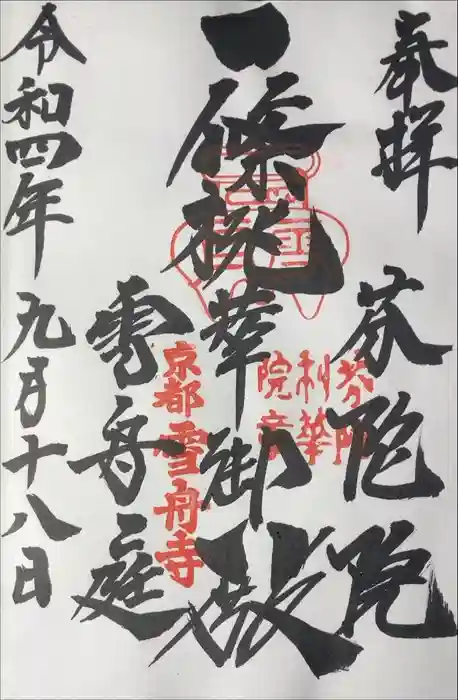 奉拝
芬陀院
芬陀
利華
院章
一條桃華御殿
雪舟庭
京都雪舟寺
令和四年九月十八日